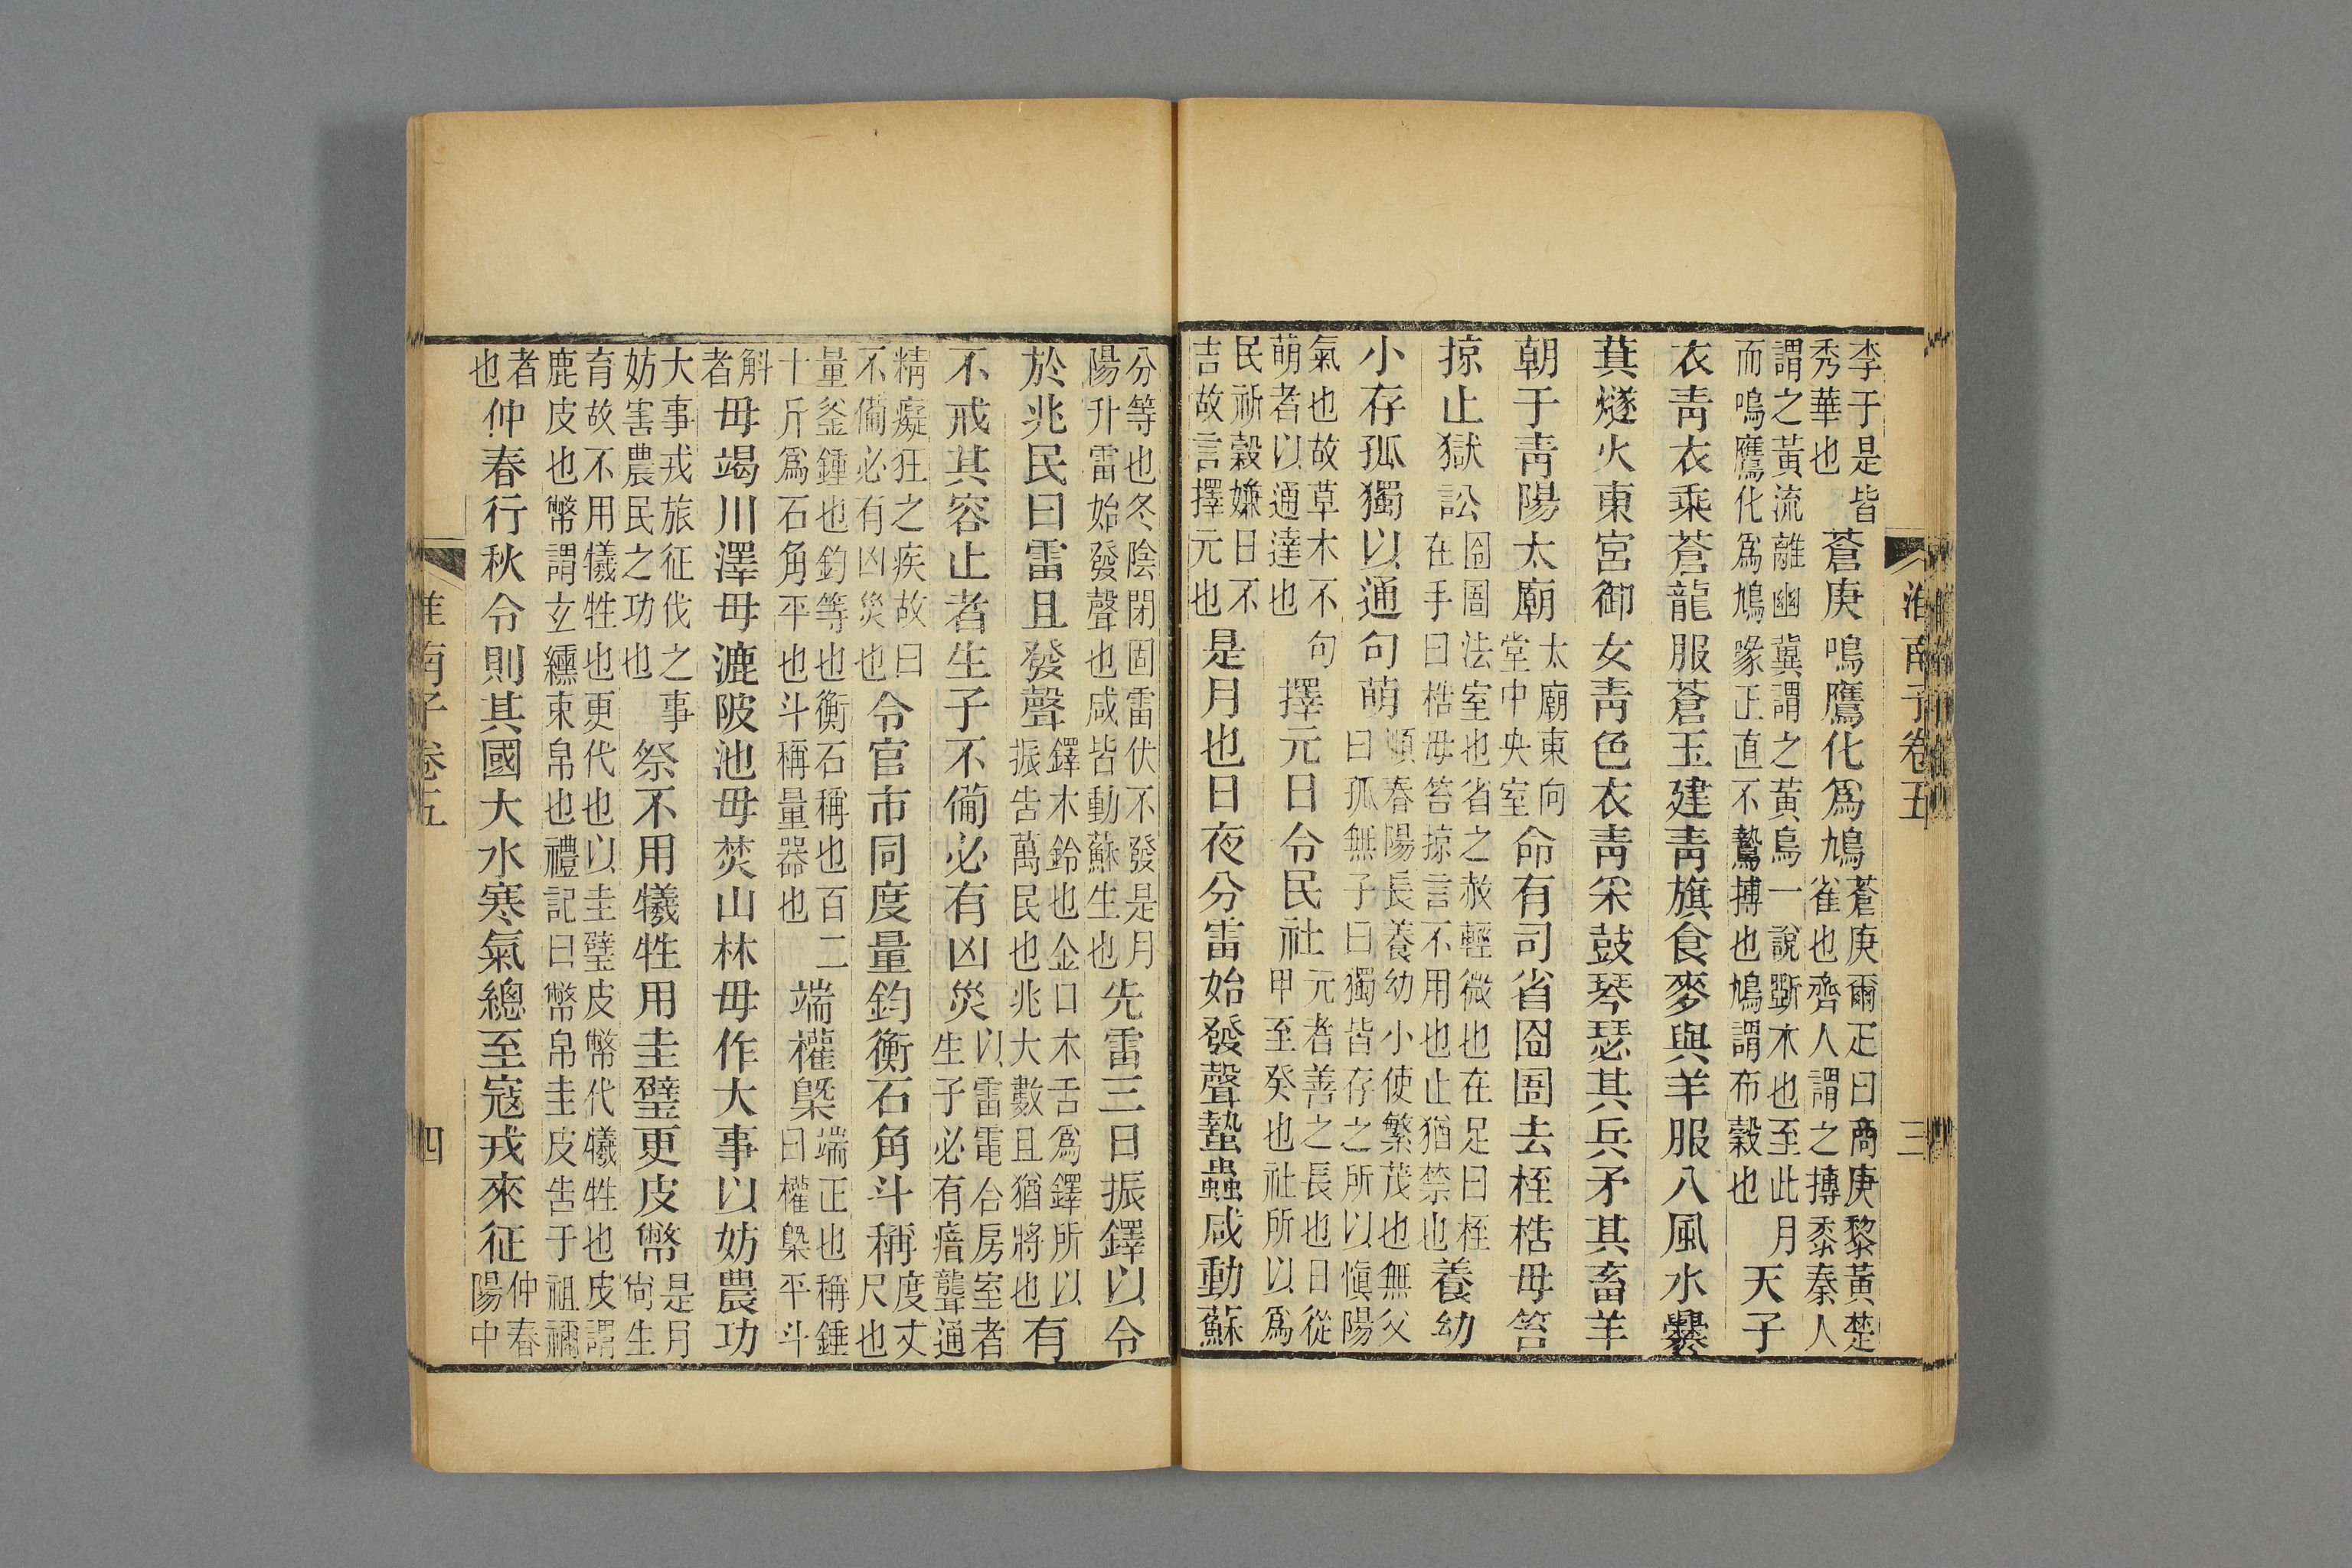 淮南子卷五 三
李于是皆秀華也蒼庚鳴鷹化爲鳩蒼庚爾疋曰商庚黎黃楚雀也齊人謂之搏黍秦人
謂之黃流離幽冀謂之黃鳥一說斲木也至此月而鳴鷹化爲鳩喙正直不鷙搏也鳩謂布穀也天子
衣靑衣乘蒼龍服蒼玉建靑旗食麥與羊服八風水爨
萁燧火東宮御女靑色衣靑采鼓琴瑟其兵矛其畜羊
朝于靑陽太廟太廟東向堂中央室命有司省囹圄去桎梏毋笞
掠止獄訟囹圄法室也省之赦輕微也在足曰桎在手曰梏毋笞掠言不用也止猶禁也養幼
小存孤獨以通句萌順春陽長養幼小使繁茂也無父曰孤無子曰獨皆存之所以愼陽
氣也故草木不句萌者以通達也擇元日令民社元者善之長也日從甲至癸也社所以爲
民祈穀嫌日不吉故言擇元也是月也日夜分雷始發聲蟄蟲咸動蘇
分等也冬陰閉固雷伏不發是月陽升雷始發聲也咸皆動蘇生也先雷三日振鐸以令
於兆民曰雷且發聲鐸木鈴也金口木舌爲鐸所以振告萬民也兆大數且猶將也有
不戒其容止者生子不備必有凶災以雷電合房室者生子必有瘖聾通
精癡狂之疾故曰不備必有凶災也令官市同度量鈞衡石角斗稱度丈尺也
量釜鍾也鈞等也衡石稱也百二十斤爲石角平也斗稱量器也端權槩端正也稱錘曰權槩平斗
斛者毋竭川澤毋漉陂池毋焚山林毋作大事以妨農功
大事戎旅征伐之事妨害農民之功也祭不用犧牲用圭璧更皮幣是月尙生
育故不用犧牲也更代也以圭璧皮幣代犧牲也皮謂鹿皮也幣謂玄纁束帛也禮記曰幣帛圭皮告于祖禰
者也仲春行秋令則其國大水寒氣總至寇戎來征仲春陽中
淮南子卷五 四